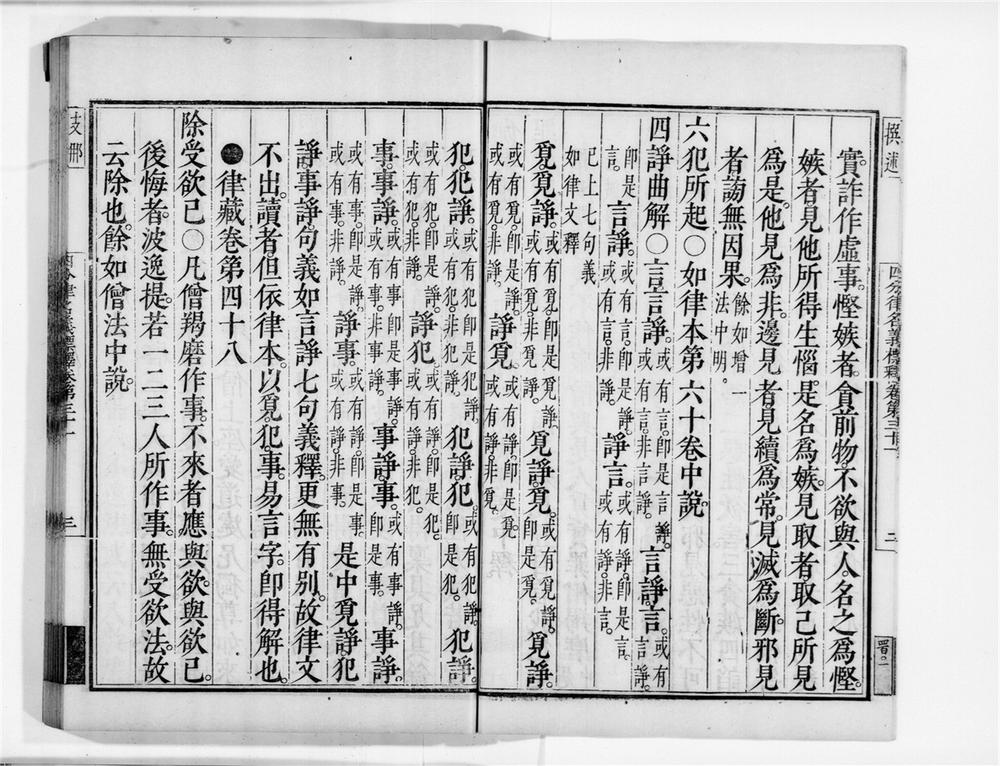 撰述
四分律名義標釋卷第三十一
二
實詐作虛事。慳嫉者。貪前物。不欲與人。名之爲慳。
嫉者見他所得生惱。是名爲嫉。見取者取己所見
爲是。他見爲非。邊見者見續爲常。見滅爲斷。邪見
者謗無因果。餘如增一
法中明。
六犯所起○如律本第六十卷中說。
四諍曲解○言言諍。或有言。即是言諍。
或有言。非言諍。言諍言。或有言諍。
即是言。言諍。或有諍。即是言諍。
或有言。非諍。諍言。或有諍。即是言。
或有諍。非言。
已上七句義
如律文釋
覓覓諍。或有覓。即是覓諍。
或有覓。非覓諍。覓諍覓。或有覓諍。
即是覓。覓諍。
或有覓。即是諍。
或有覓。非諍。諍覓。或有諍。即是覓。
或有諍。非覓。
犯犯諍。或有犯。即是犯諍。
或有犯。非犯諍。犯諍犯。或有犯諍。
即是犯。犯諍。
或有犯。即是諍。
或有犯。非諍。諍犯。或有諍。即是犯。
或有諍。非犯。
事事諍。或有事。即是事諍。
或有事。非事諍。事諍事。或有事諍。
即是事。事諍。
或有事。即是諍。
或有事。非諍。諍事。或有諍。即是事。
或有諍。非事。是中覓諍犯
諍事諍。句義如言諍七句義釋。更無有別。故律文
不出。讀者但依律本。以覓。犯。事。易言字。即得解也。
●律藏卷第四十八
除受欲已○凡僧羯磨作事。不來者。應與欲。與欲已。
後悔者。波逸提。若一二三人所作事。無受欲法。故
云除也。餘如僧法中說。
支那
三